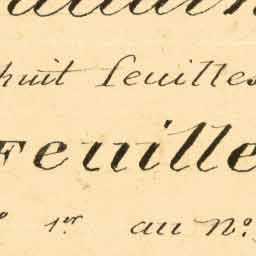 huit feuilles
Feuille
1er au No.